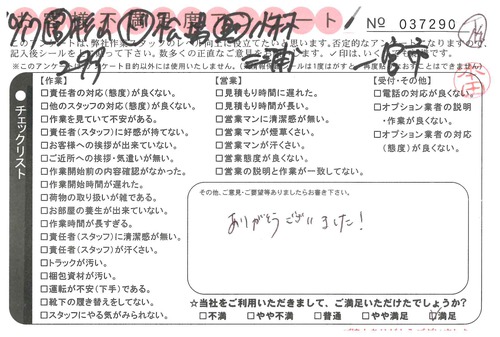 不満足度アンケート
No 037290
このアンケートは、弊社作業スタッフのレベル向上に役立てたい思います。否定的なアンケートになりますので、
記入後シールをよろしくお願い致します。
※このアンケートは、アンケート目的以外には使用いたしません。
チェックリスト
【作業】
□責任者の対応(態度)が良くない。
□他のスタッフの対応(態度)が良くない。
□作業を見ていて不安がある。
□責任者(スタッフ)に好感が持てない。
□お客様への挨拶が出来ていない。
□ご近所への挨拶・気遣いが無い。
□作業開始前の内容確認がなかった。
□作業開始時間が遅れた。
□荷物の取り扱いが雑である。
□お部屋の養生が出来ていない。
□作業時間が長すぎる。
□責任者(スタッフ)に清潔感が無い。
□責任者(スタッフ)が汗くさい。
□トラックが汚い。
□梱包資材が汚い。
□運転が不安(下手)である。
□靴下の履き替えをしてない。
□スタッフにやる気がみられない。
【営業】
□見積もり時間に遅れた。
□見積もり時間が長い。
□営業マンに清潔感が無い。
□営業マンが煙草くさい。
□営業マンが汗くさい。
□営業態度が良くない。
□営業の説明と作業が一致してない。
【受付・その他】
□電話の対応が良くない。
□オプション業者の説明
・作業が良くない。
□オプション業者の対応
(態度)が良くない。
その他、ご意見・ご要望等ありましたらお書き下さい。
ありがとうございました!
☆当社をご利用いただきまして、ご満足いただけたでしょうか?
□不満 □やや不満 □普通 □やや満足 □満足